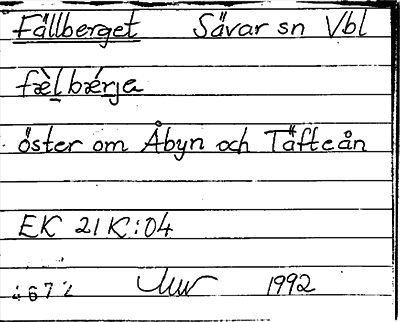 Fällberget Sävar sn Vbl
fæ̀l bǽrja
öster om Åbyn och Täfteån
EK 21 K:04
1992